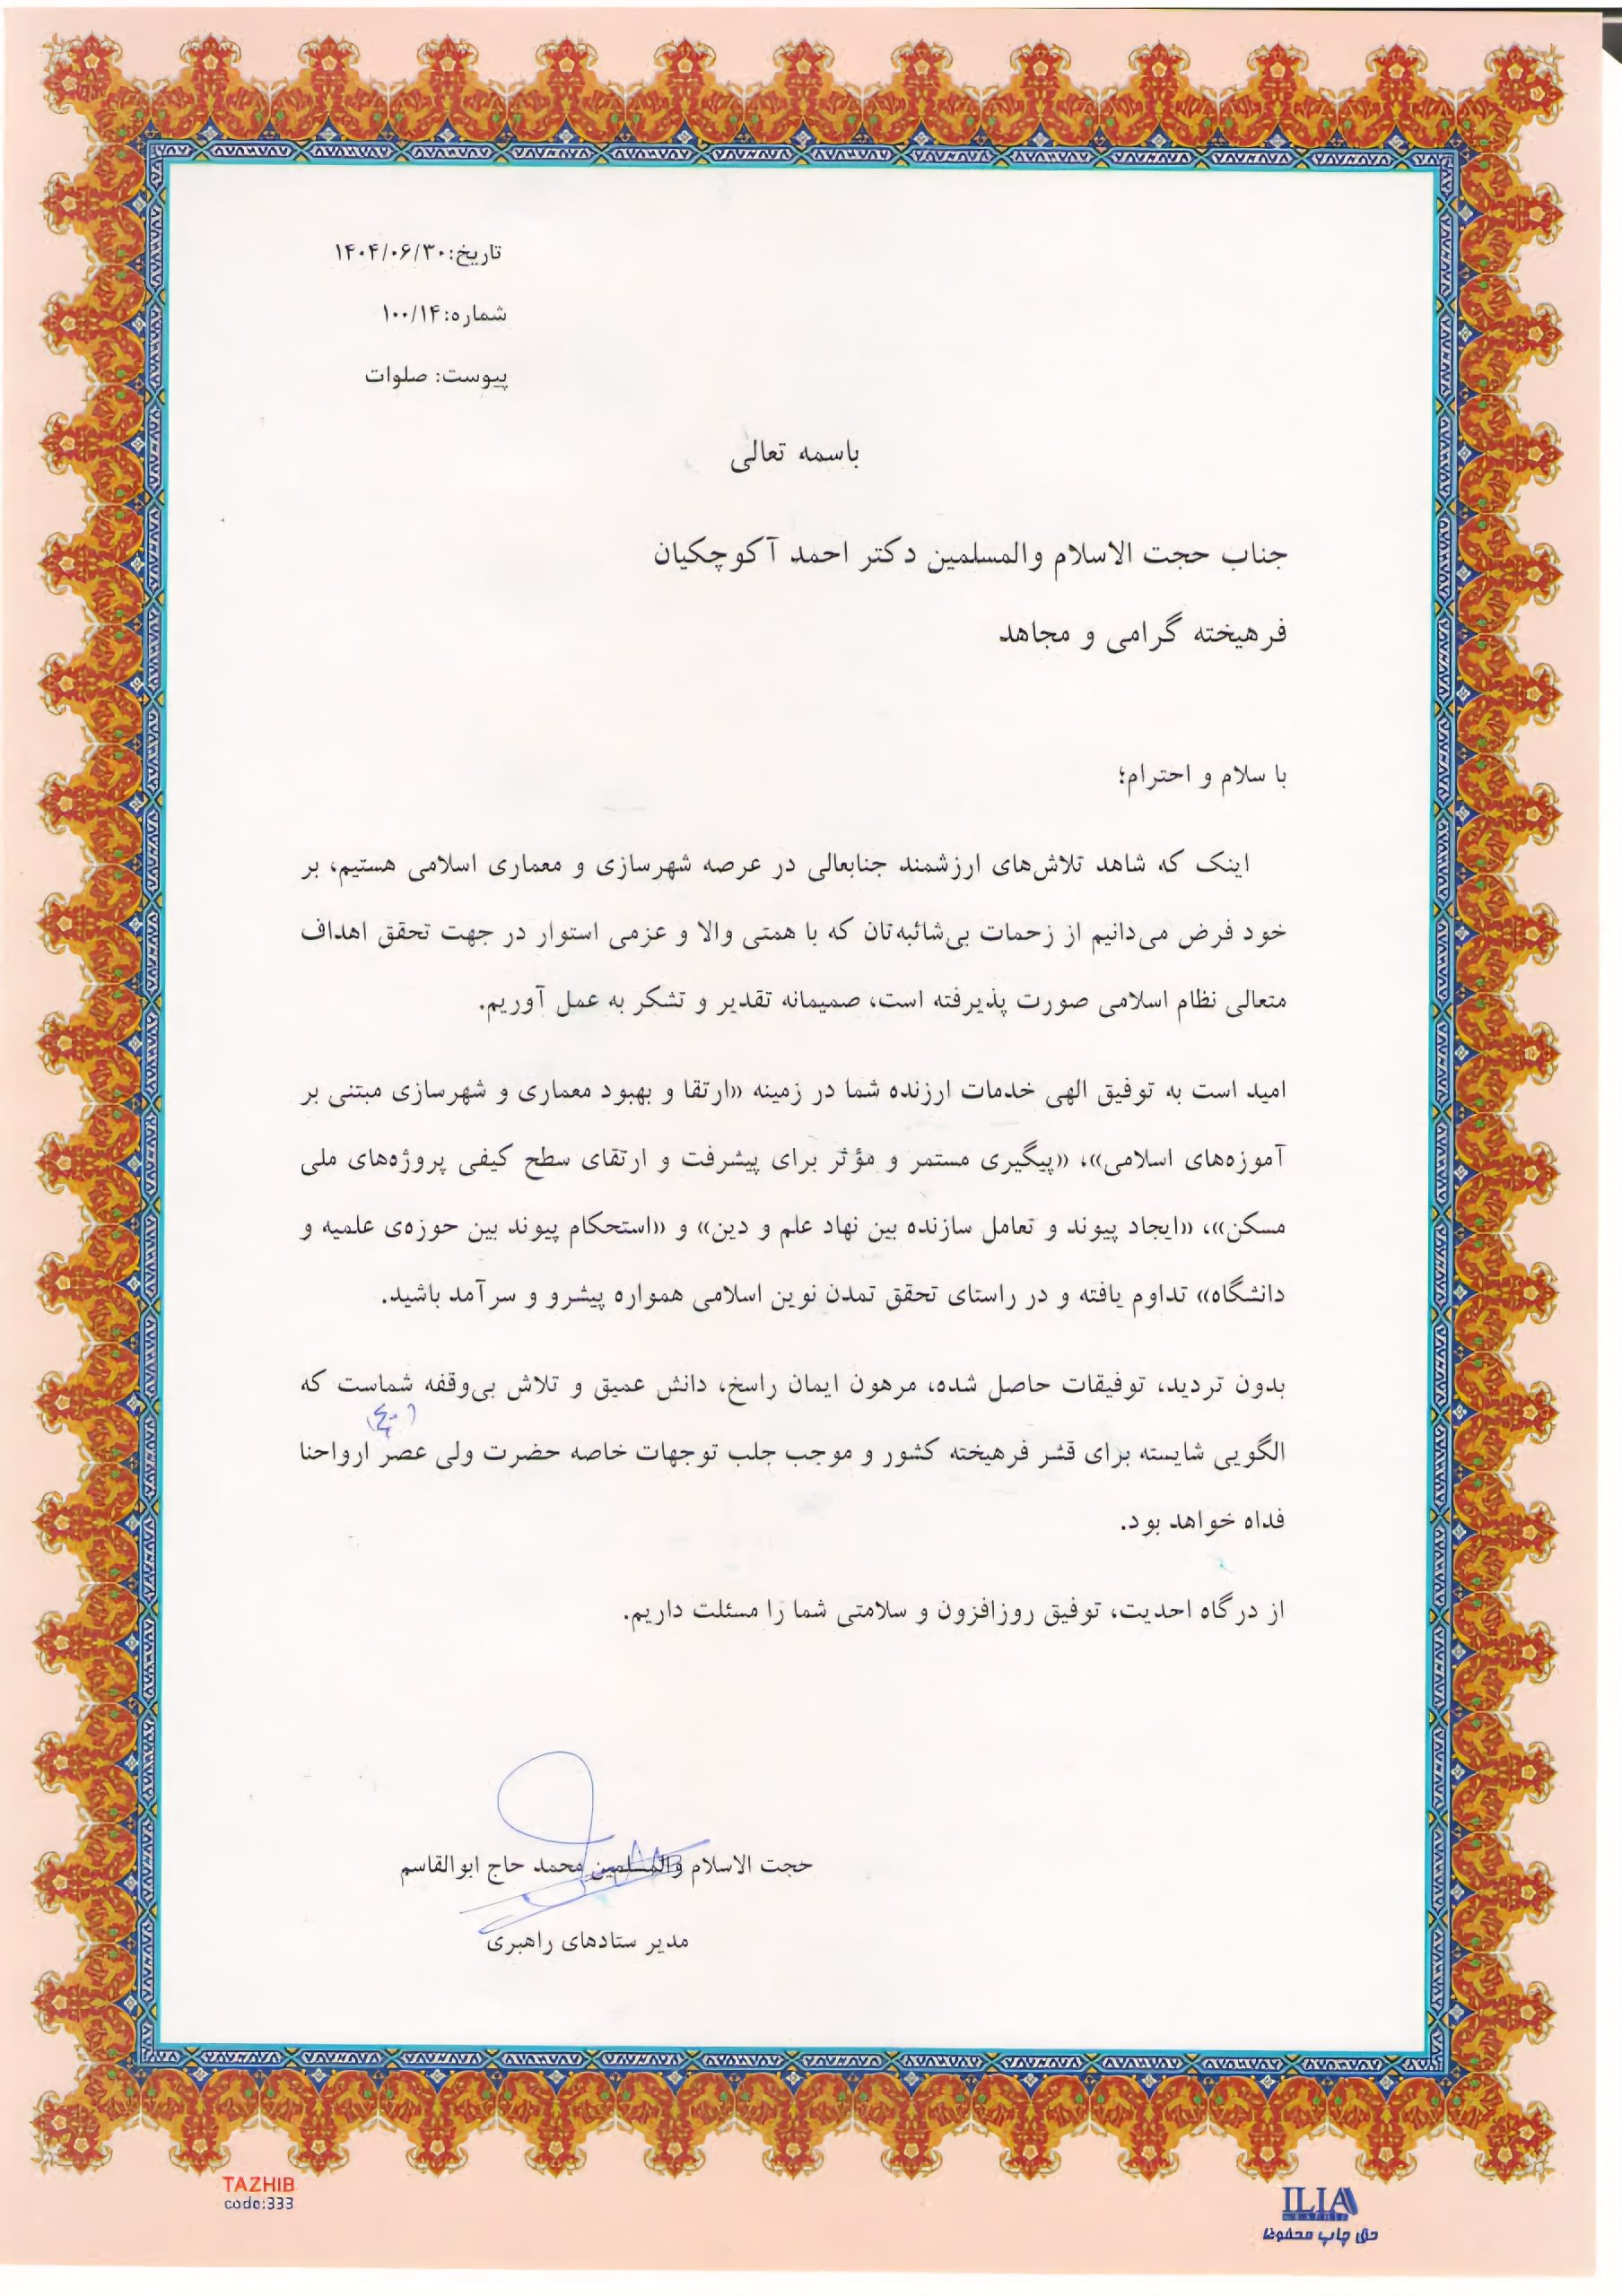 تاریخ:۱۴۰۴/۰۶/۳۰
شماره:۱۰۰/۱۴
پیوست: صلوات
باسمه تعالی
جناب حجت الاسلام والمسلمین دکتر احمد آکوچکیان
فرهیخته گرامی و مجاهد
با سلام و احترام؛
اینک که شاهد تلاش‌های ارزشمند جنابعالی در عرصه شهرسازی و معماری اسلامی هستیم، بر
خود فرض می‌دانیم از زحمات بی‌شائبه‌تان که با همتی والا و عزمی استوار در جهت تحقق اهداف
متعالی نظام اسلامی صورت پذیرفته است، صمیمانه تقدیر و تشکر به عمل آوریم.
امید است به توفیق الهی خدمات ارزنده شما در زمینه «ارتقا و بهبود معماری و شهرسازی مبتنی بر
آموزه‌های اسلامی»، «پیگیری مستمر و مؤثر برای پیشرفت و ارتقای سطح کیفی پروژه‌های ملی
مسکن»، «ایجاد پیوند و تعامل سازنده بین نهاد علم و دین» و «استحکام پیوند بین حوزه‌ی علمیه و
دانشگاه» تداوم یافته و در راستای تحقق تمدن نوین اسلامی همواره پیشرو و سرآمد باشید.
بدون تردید، توفیقات حاصل شده، مرهون ایمان راسخ، دانش عمیق و تلاش بی‌وقفه شماست که
الگویی شایسته برای قشر فرهیخته کشور و موجب جلب توجهات خاصه حضرت ولی عصر ارواحنا
فداه خواهد بود.
از درگاه احدیت، توفیق روزافزون و سلامتی شما را مسئلت داریم.
حجت الاسلام والمسلمین محمد حاج ابوالقاسم
مدیر ستادهای راهبری
TAZHIB
code:333
ILIA
حق چاپ محفوظ